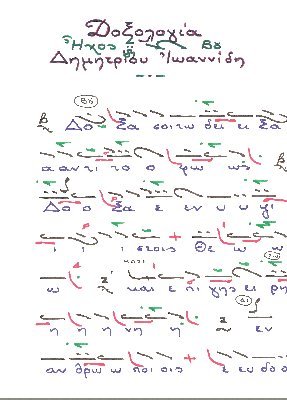 Δοξολογία
Ἦχος Βυ
Δημητρίου Ἰωαννίδη
Βυ
Δο ξα σοι τω δει ει ξα
α αν τι το ο φω ως
Δο ο ξα ε εν υ υ ψι
ι ι ι στοις Θε ω ω
ω και ε πι γης ει ρη
η η η νη η εν
αν θρω ω ποι οις ε ευ δο ο